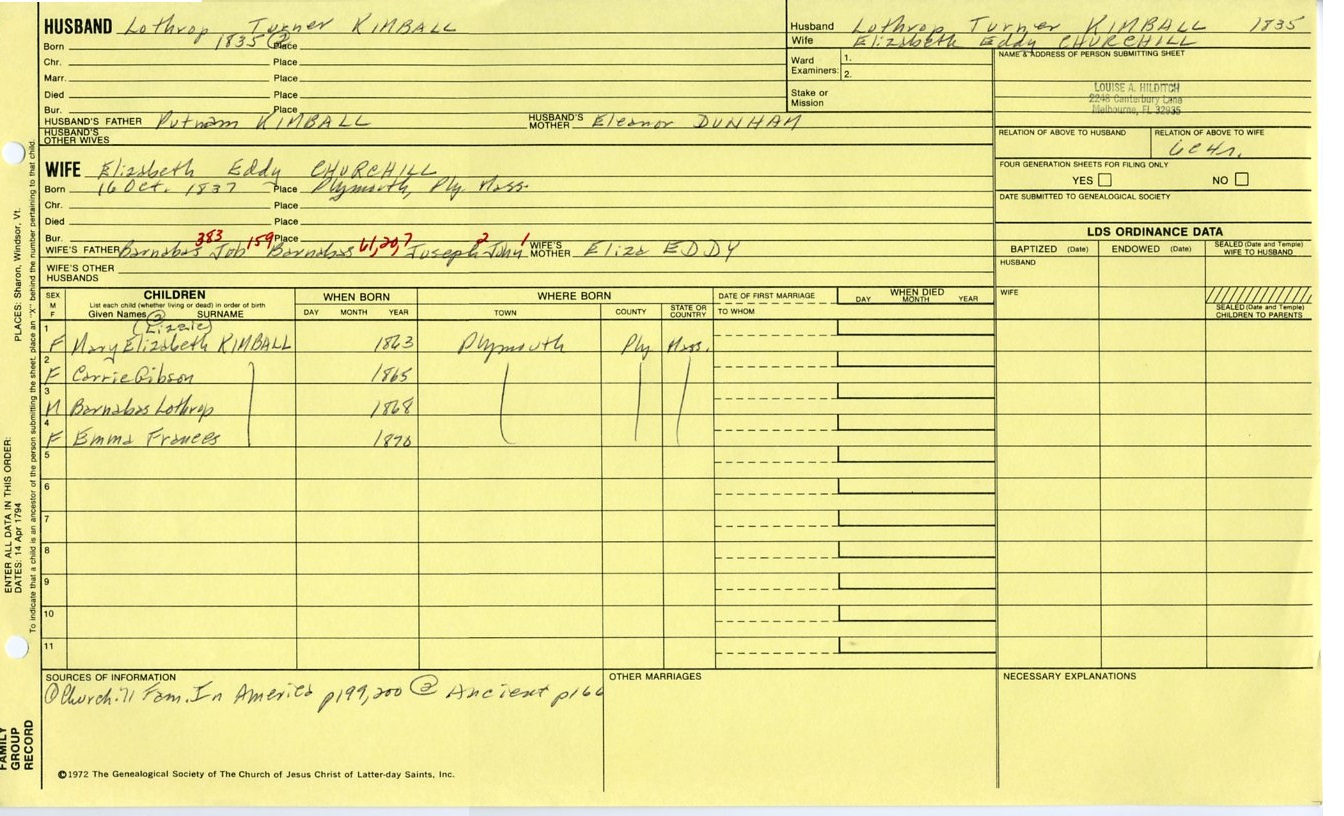 HUSBAND Lothrop Turner KIMBALL
Born 1835 ② Place
Chr. Place
Marr. Place
Died Place
Bur. Place
HUSBAND'S FATHER Putnam KIMBALL HUSBAND'S MOTHER Eleanor DUNHAM
HUSBAND'S OTHER WIVES
Husband Lothrop Turner KIMBALL 1835
Wife Elizabeth Eddy CHURCHILL
Ward Examiners: 1.
2.
Stake or Mission
NAME & ADDRESS OF PERSON SUBMITTING SHEET
LOUISE A. HILDITCH
2248 Canterbury Lane
Melbourne, FL 32935
RELATION OF ABOVE TO HUSBAND RELATION OF ABOVE TO WIFE
6c4r.
FOUR GENERATION SHEETS FOR FILING ONLY
YES NO
DATE SUBMITTED TO GENEALOGICAL SOCIETY
WIFE Elizabeth Eddy CHURCHILL
Born 16 Oct. 1837 Place Plymouth, Ply Mass.
Chr. Place
Died Place
Bur. Place
383 159 61,207 2 1
WIFE'S FATHER Barnabas Job Barnabas Joseph John WIFE'S MOTHER Eliza EDDY
WIFE'S OTHER HUSBANDS
LDS ORDINANCE DATA
BAPTIZED (Date) ENDOWED (Date) SEALED (Date and Temple) WIFE TO HUSBAND
HUSBAND
WIFE
SEALED (Date and Temple) CHILDREN TO PARENTS
SEX M F
CHILDREN
List each child (whether living or dead) in order of birth
Given Names ② SURNAME
WHEN BORN
DAY MONTH YEAR
WHERE BORN
TOWN COUNTY STATE OR COUNTRY
DATE OF FIRST MARRIAGE
TO WHOM
WHEN DIED
DAY MONTH YEAR
(Lizzie)
1 F Mary Elizabeth KIMBALL 1863 Plymouth Ply Mass.
2 F Carrie Gibson 1865
3 M Barnabas Lothrop 1868
4 F Emma Frances 1870
5
6
7
8
9
10
11
SOURCES OF INFORMATION
① Churchill Fam. In America p199,200 ② Ancient p166
OTHER MARRIAGES
NECESSARY EXPLANATIONS
©1972 The Genealogical Society of The Church of Jesus Christ of Latter-day Saints, Inc.
FAMILY GROUP RECORD
ENTER ALL DATA IN THIS ORDER:
DATES: 14 Apr 1794
PLACES: Sharon, Windsor, Vt.
To indicate that a child is an ancestor of the person submitting the sheet, place an "X" behind the number pertaining to that child.